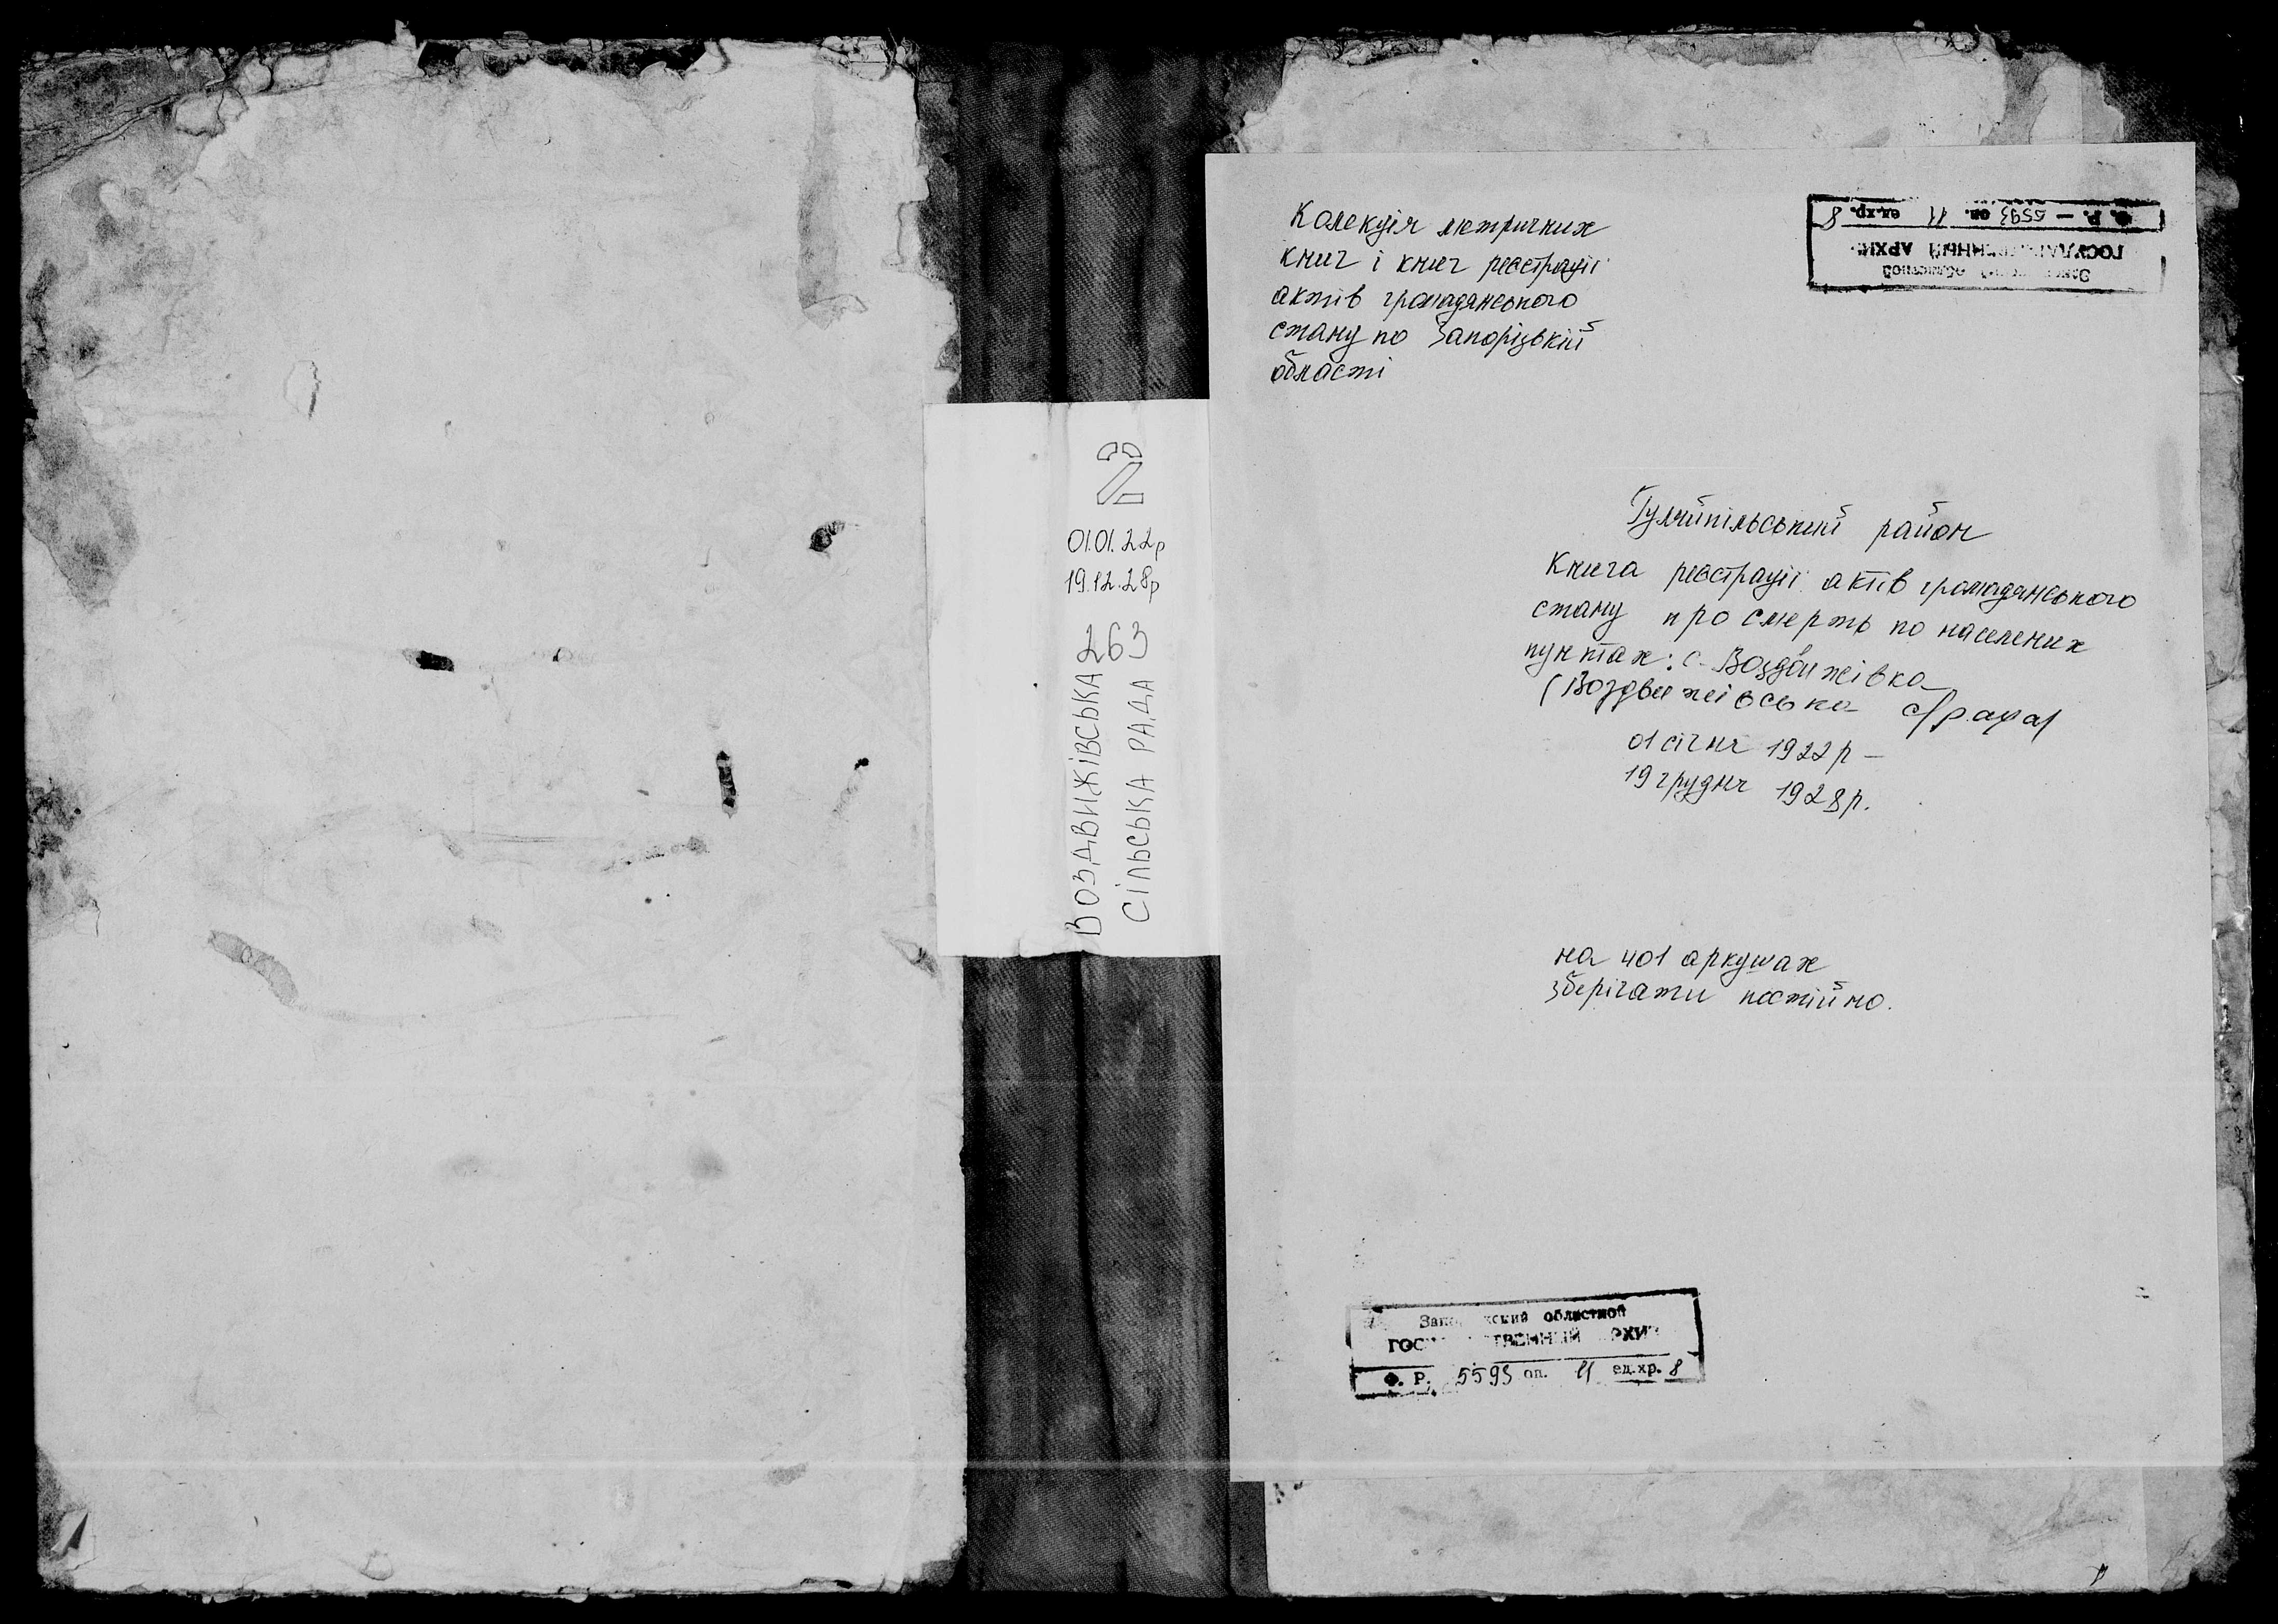 2
01.01.22р
19.12.28р
263
ВОЗДВИЖІВСЬКА
СІЛЬСЬКА РАДА
Колекція метричних
книг і книг реєстрації
актів громадянського
стану по Запорізькій
області
Ф. Р. — 5593 оп. 11 ед.хр. 8
областной
Гуляйпільський район
Книга реєстрації актів громадянського
стану про смерть по населених
пунктах: с. Воздвижівка
(Воздвижівська с/рада)
01 січня 1922р –
19 грудня 1928р.
на 401 аркушах
зберігати постійно.
областной
Ф. Р. 5593 оп. 11 ед.хр. 8